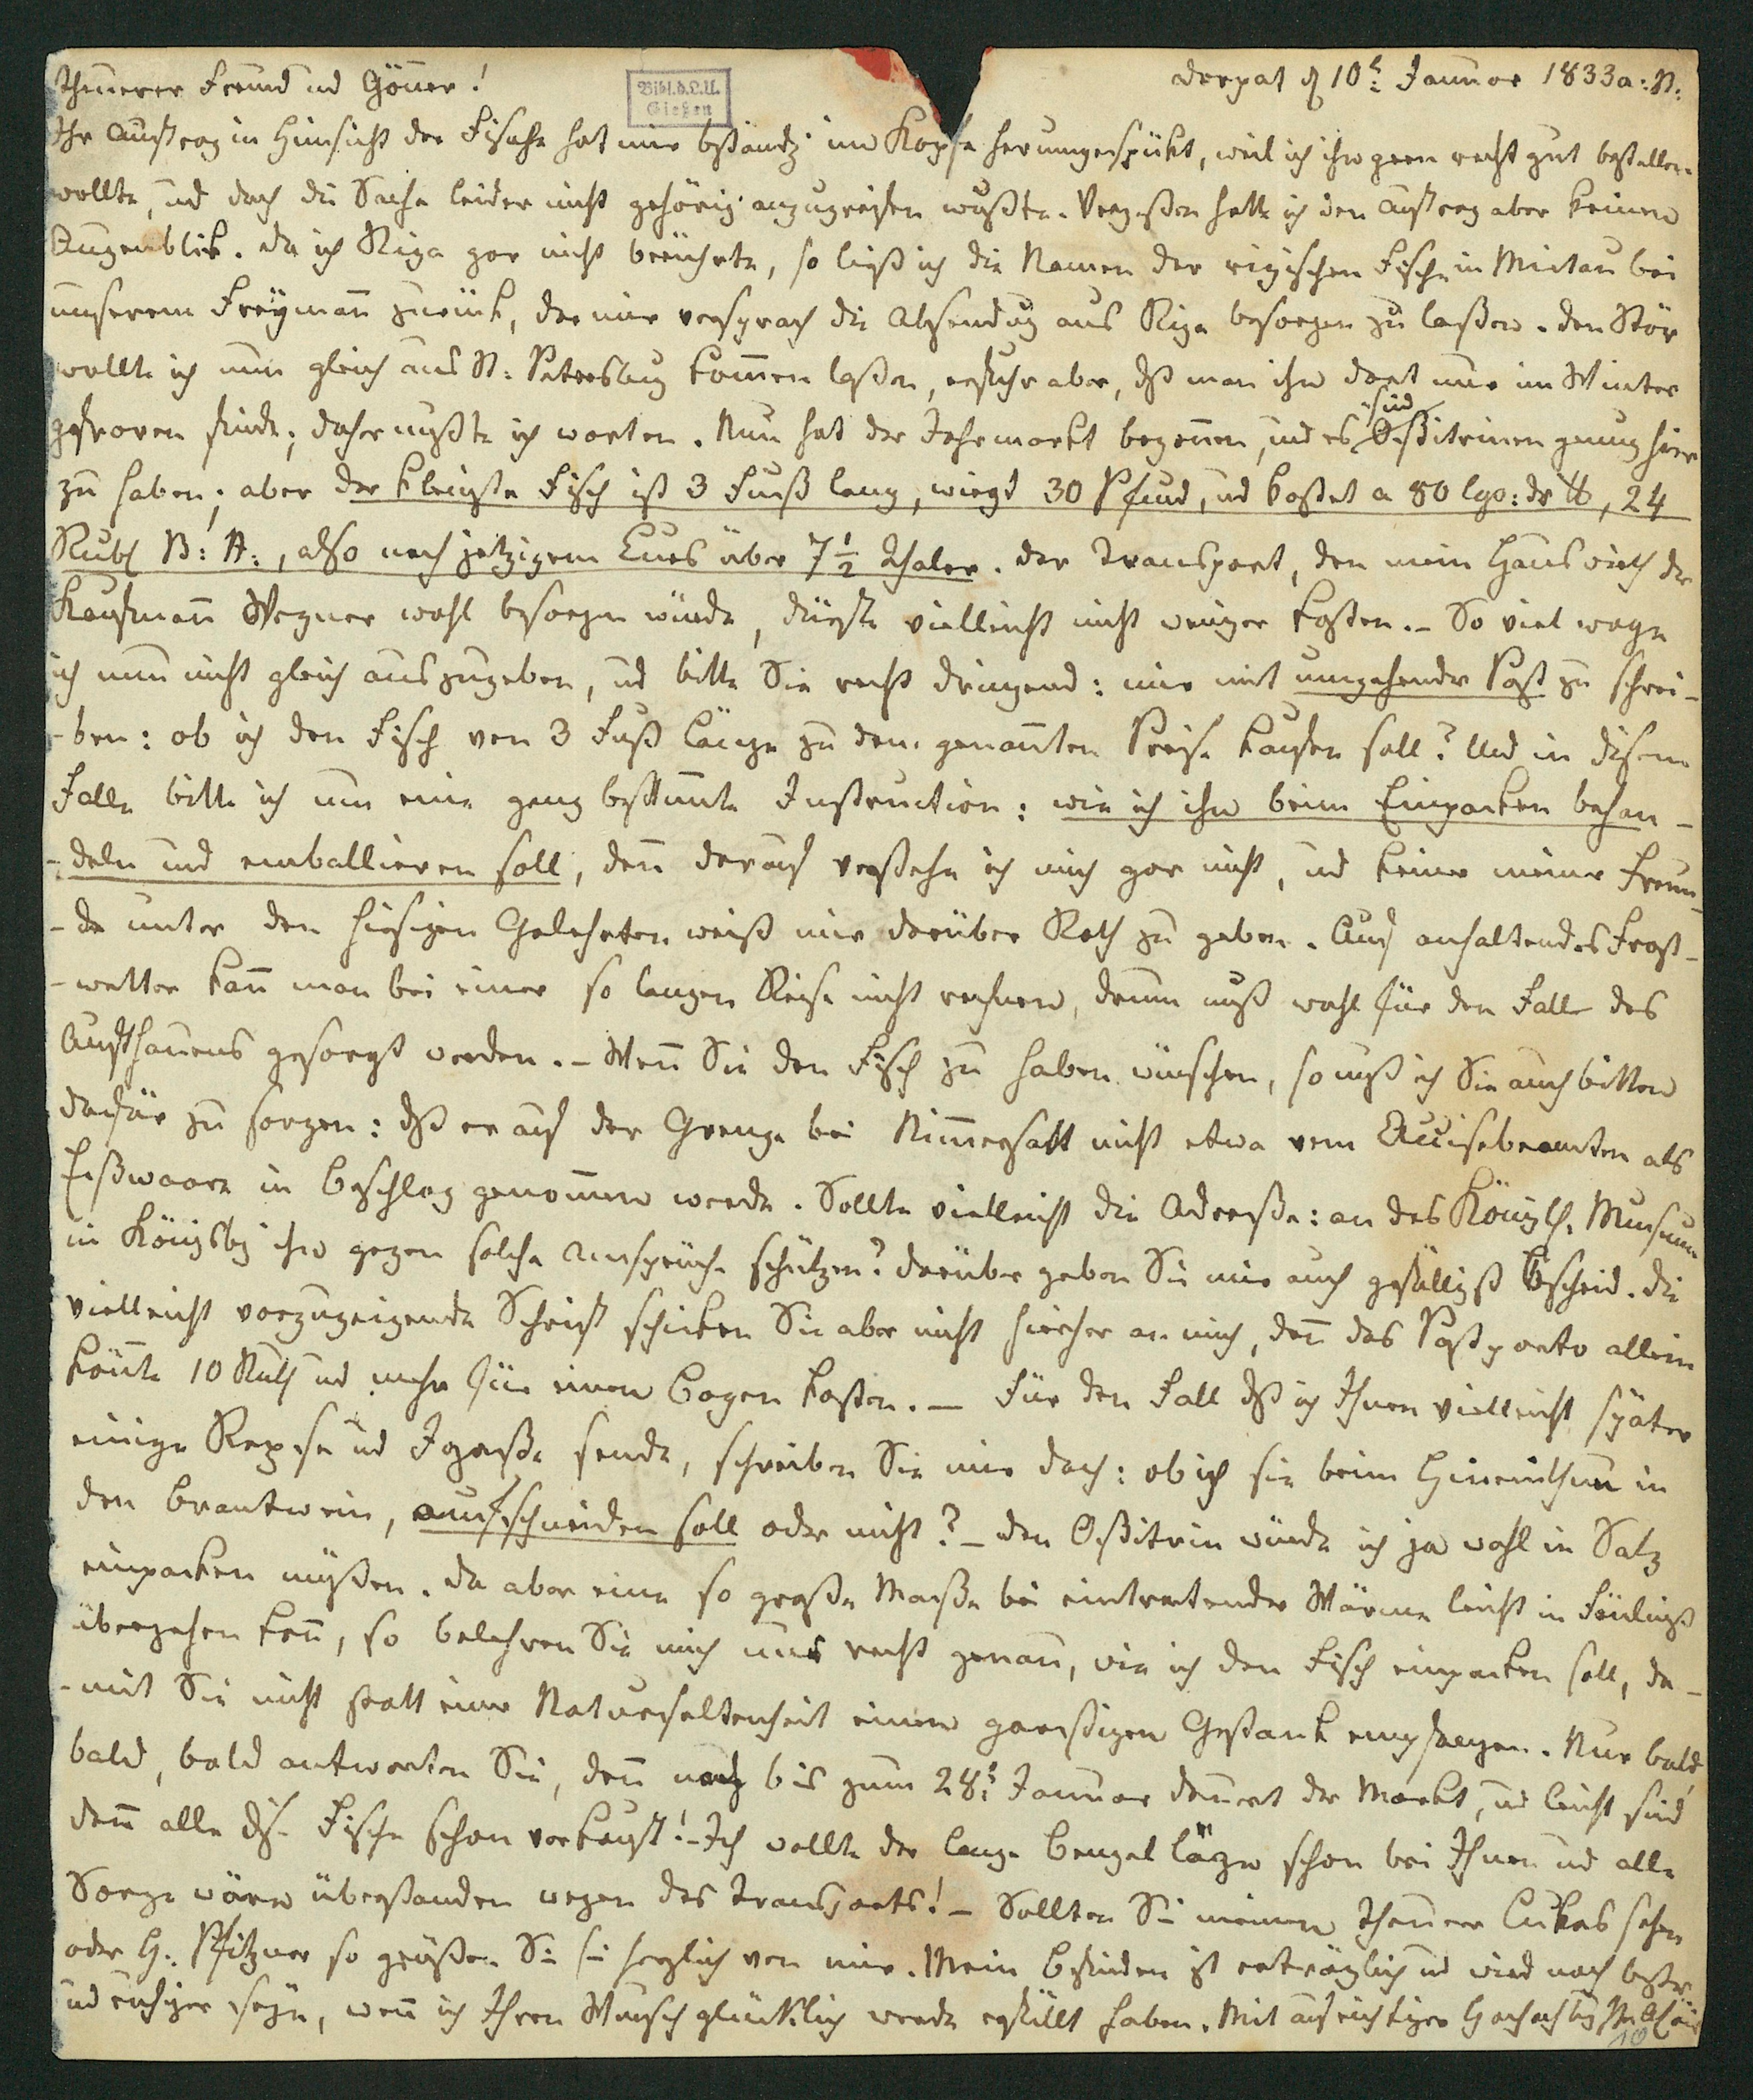 Dorpat d 10t: Januar 1833 a: St:
Theurer Freund und Gönner!
Bibl. d. L. U.
Gießen
Ihr Auftrag in Hinsicht der Fische hat mir beständig im Kopfe herumgespükt, weil ich ihn gern recht gut bestellen
wollte, und doch die Sache leider nicht gehörig anzugreifen wußte. Vergeßen hatte ich den Auftrag aber keinen
Augenblik. Da ich Riga gar nicht berührte, so ließ ich die Namen der rigischen Fische in Mietau bei
unserem Freymañ zurük, der mir versprach die Absendung aus Riga besorgen zu laßen. Den Stör
wollte ich nun gleich aus St: Petersburg kom̃en laßen, erfuhr aber, daß man ihn dort nur im Winter
gefroren finde; daher mußte ich warten. Nun hat der Jahrmarkt begon̄en, und es sind Oßitrinen genug hier
zu haben; aber der kleinste Fisch ist 3 Fuß lang, wiegt 30 Pfund, und kostet a 80 Cop: dr ℔, 24
Rubl B: A:, also nach jetzigem Curs über 7½ Thaler. Der Transport, den mein Hauswirth der
Kaufmañ Wegner wohl besorgen würde, dürfte vielleicht nicht weniger kosten. – So viel wage
ich nun nicht gleich auszugeben, und bitte Sie recht dringend: mir mit umgehender Post zu schrei-
-ben: ob ich den Fisch von 3 Fuß Länge zu dem genañten Preise kaufen soll? Und in diesem
Falle bitte ich um eine ganz bestim̃te Instruction: wie ich ihn beim Einpacken behan-
-deln und emballieren soll, deñ darauf verstehe ich mich gar nicht, und keiner meiner Freun-
-de unter den hiesigen Gelehrten weiß mir darüber Rath zu geben. Auf anhaltendes Frost-
-wetter kañ man bei einer so langen Reise nicht rechnen, drum muß wohl für den Fall des
Aufthauens gesorgt werden. – Weñ Sie den Fisch zu haben wünschen, so muß ich Sie auch bitten
dafür zu sorgen: daß er auf der Grenze bei Nim̃ersatt nicht etwa vom Accisebeamten als
Eßwaare in Beschlag genom̃en werde. Sollte vielleicht die Adreße: an das Königl. Museum
in Königsbg ihn gegen solche Ansprüche schützen? Darüber geben Sie mir auch gefälligst Bescheid. Die
vielleicht vorzuzeigende Schrift schicken Sie aber nicht hierher an mich, deñ das Postporto allein
köñte 10 Rubl und mehr für einen Bogen kosten. – Für den Fall daß ich Ihnen vielleicht später
einige Rapfe und Igaße sende, schreiben Sie mir doch: ob ich sie beim Hineinthun in
den Brantwein, aufschneiden soll oder nicht? – Den Oßitrin würde ich ja wohl in Salz
einpacken müßen. Da aber eine so große Maße bei eintretender Wärme leicht in Fäulniß
übergehen kañ, so belehren Sie mich nur recht genau, wie ich den Fisch einpacken soll, da-
-mit Sie nicht statt einer Naturseltenheit einen garstigen Gestank empfangen. Nur bald,
bald, bald antworten Sie, deñ nur bis zum 28t: Januar dauert der Markt, und leicht sind
dañ alle diese Fische schon verkauft! – Ich wollte der lange Bengel läge schon bei Ihnen und alle
Sorge wäre überstanden wegen des Transports! – Sollten Sie meinen theuren Lukas sehen
oder H. Pfitzner so grüßen Sie sie herzlich von mir. Mein Befinden ist erträglich und wird noch beßer
und ruhiger seyn, weñ ich Ihren Wunsch glücklich werde erfüllt haben. Mit aufrichtiger Hochachtung
10